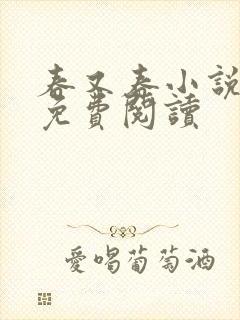 春又春小說
免費閱讀
愛喝葡萄酒